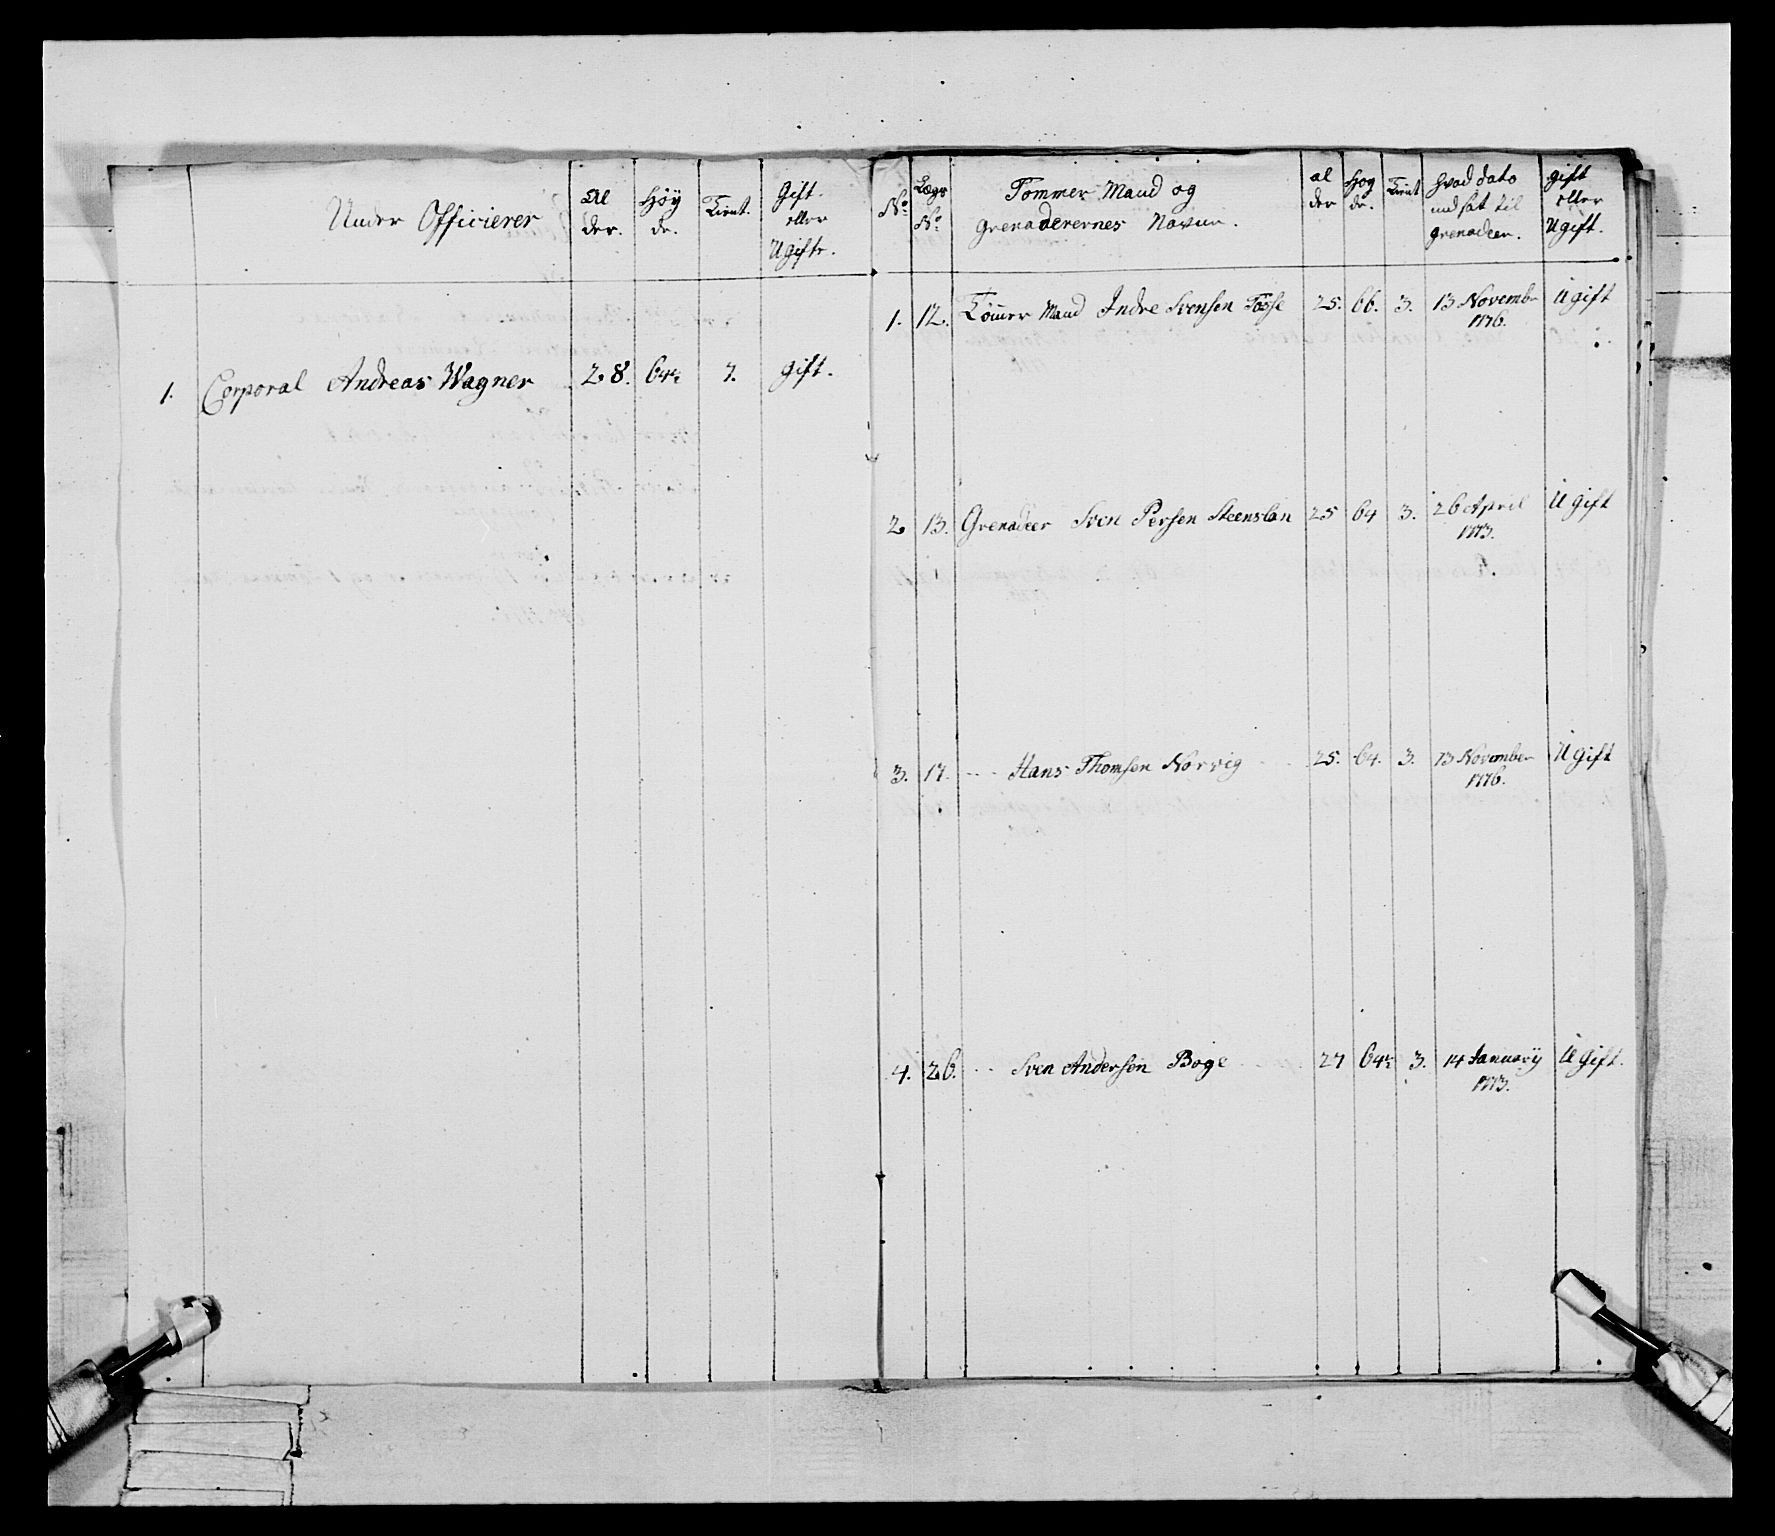 Under Officierer
Al
der.
Høÿ
de.
Tient.
Gift.
eller
Ugifte.
1. Corporal Andreas Wagner 28. 64½ 7. gift.
No
Lægs
No
Tømmer Mand og
grenaderernes Navne.
al
der
Høy
de.
Tient
hvad dato
indsat til
grenadeer.
gift
eller
Ugift.
1. 12. Tömer Mand Indre Svensen Tösse 25. 66. 3. 13 Novembr Ugift
1776.
2 13. Grenadeer Sven Persen Steensland 25 64 3. 26 April Ugift
1773.
3. 17. --- Hans Thomsen Norvig 25. 64. 3. 13 November Ugift
1776.
4. 26. -- Sven Andersen Boge 27 64½ 3. 14 Januarÿ Ugift.
1773.